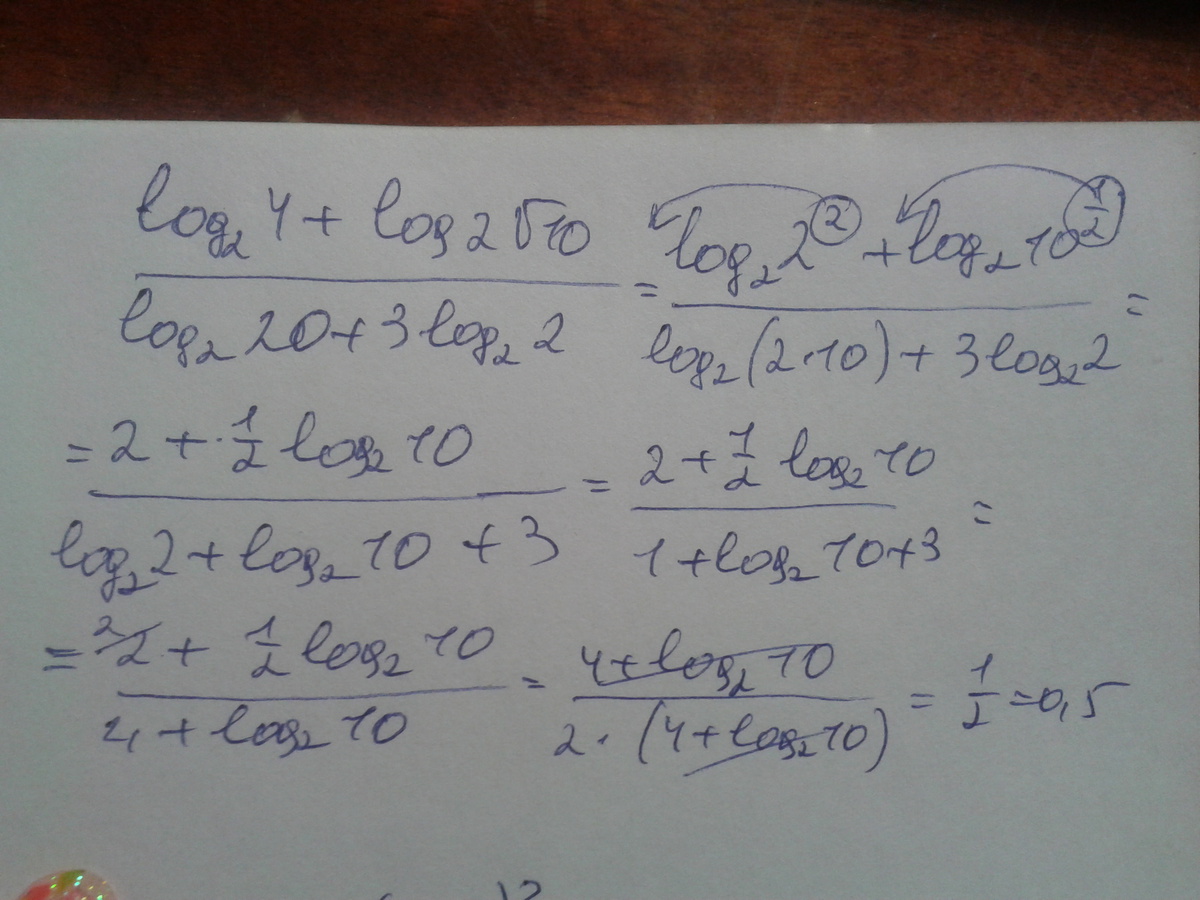 log₂4 + log2√10 / log₂20 + 3log₂2 = log₂2² + log₂10^(1/2) / log₂(2·10) + 3log₂2 =
= 2 + · 1/2 log₂10 / log₂2 + log₂10 + 3 = 2 + 1/2 log₂10 / 1 + log₂10 + 3 =
= ²2 + 1/2 log₂10 / 4 + log₂10 = 4 + log₂10 / 2·(4 + log₂10) = 1/2 = 0,5